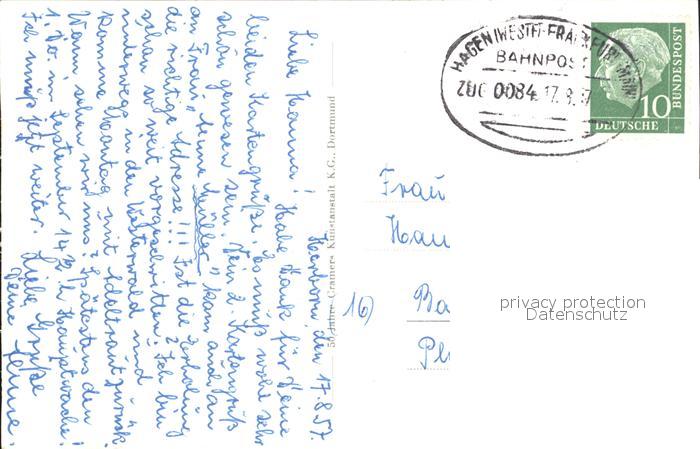 Herborn, den 17.8.57.
Liebe Hanna! Hab Dank für Deine
beiden Kartengrüße. Es muß wohl sehr
schön gewesen sein. Dein 2. Kartengruß
an Frau „Lenne Müller“ kam auch an
die richtige Adresse!!! Ist die Erholung
schon so weit vorgeschritten? Ich bin
unterwegs in den Westerwald und
komme Montag mit Edeltraut zurück.
Wann sehen wir uns? Spätestens den
1. So. im September 14 30 h Hauptwache!
Ich muß jetzt weiter. Liebe Grüße
Deine Lenne.
50 Jahre Cramers Kunstanstalt K.G., Dortmund
HAGEN (WESTF)-FRANKFURT (MAIN)
BAHNPOST
ZUG 0084 17.8.57
10
DEUTSCHE
BUNDESPOST
Frau
Han
16) Ba
privacy protection
Datenschutz